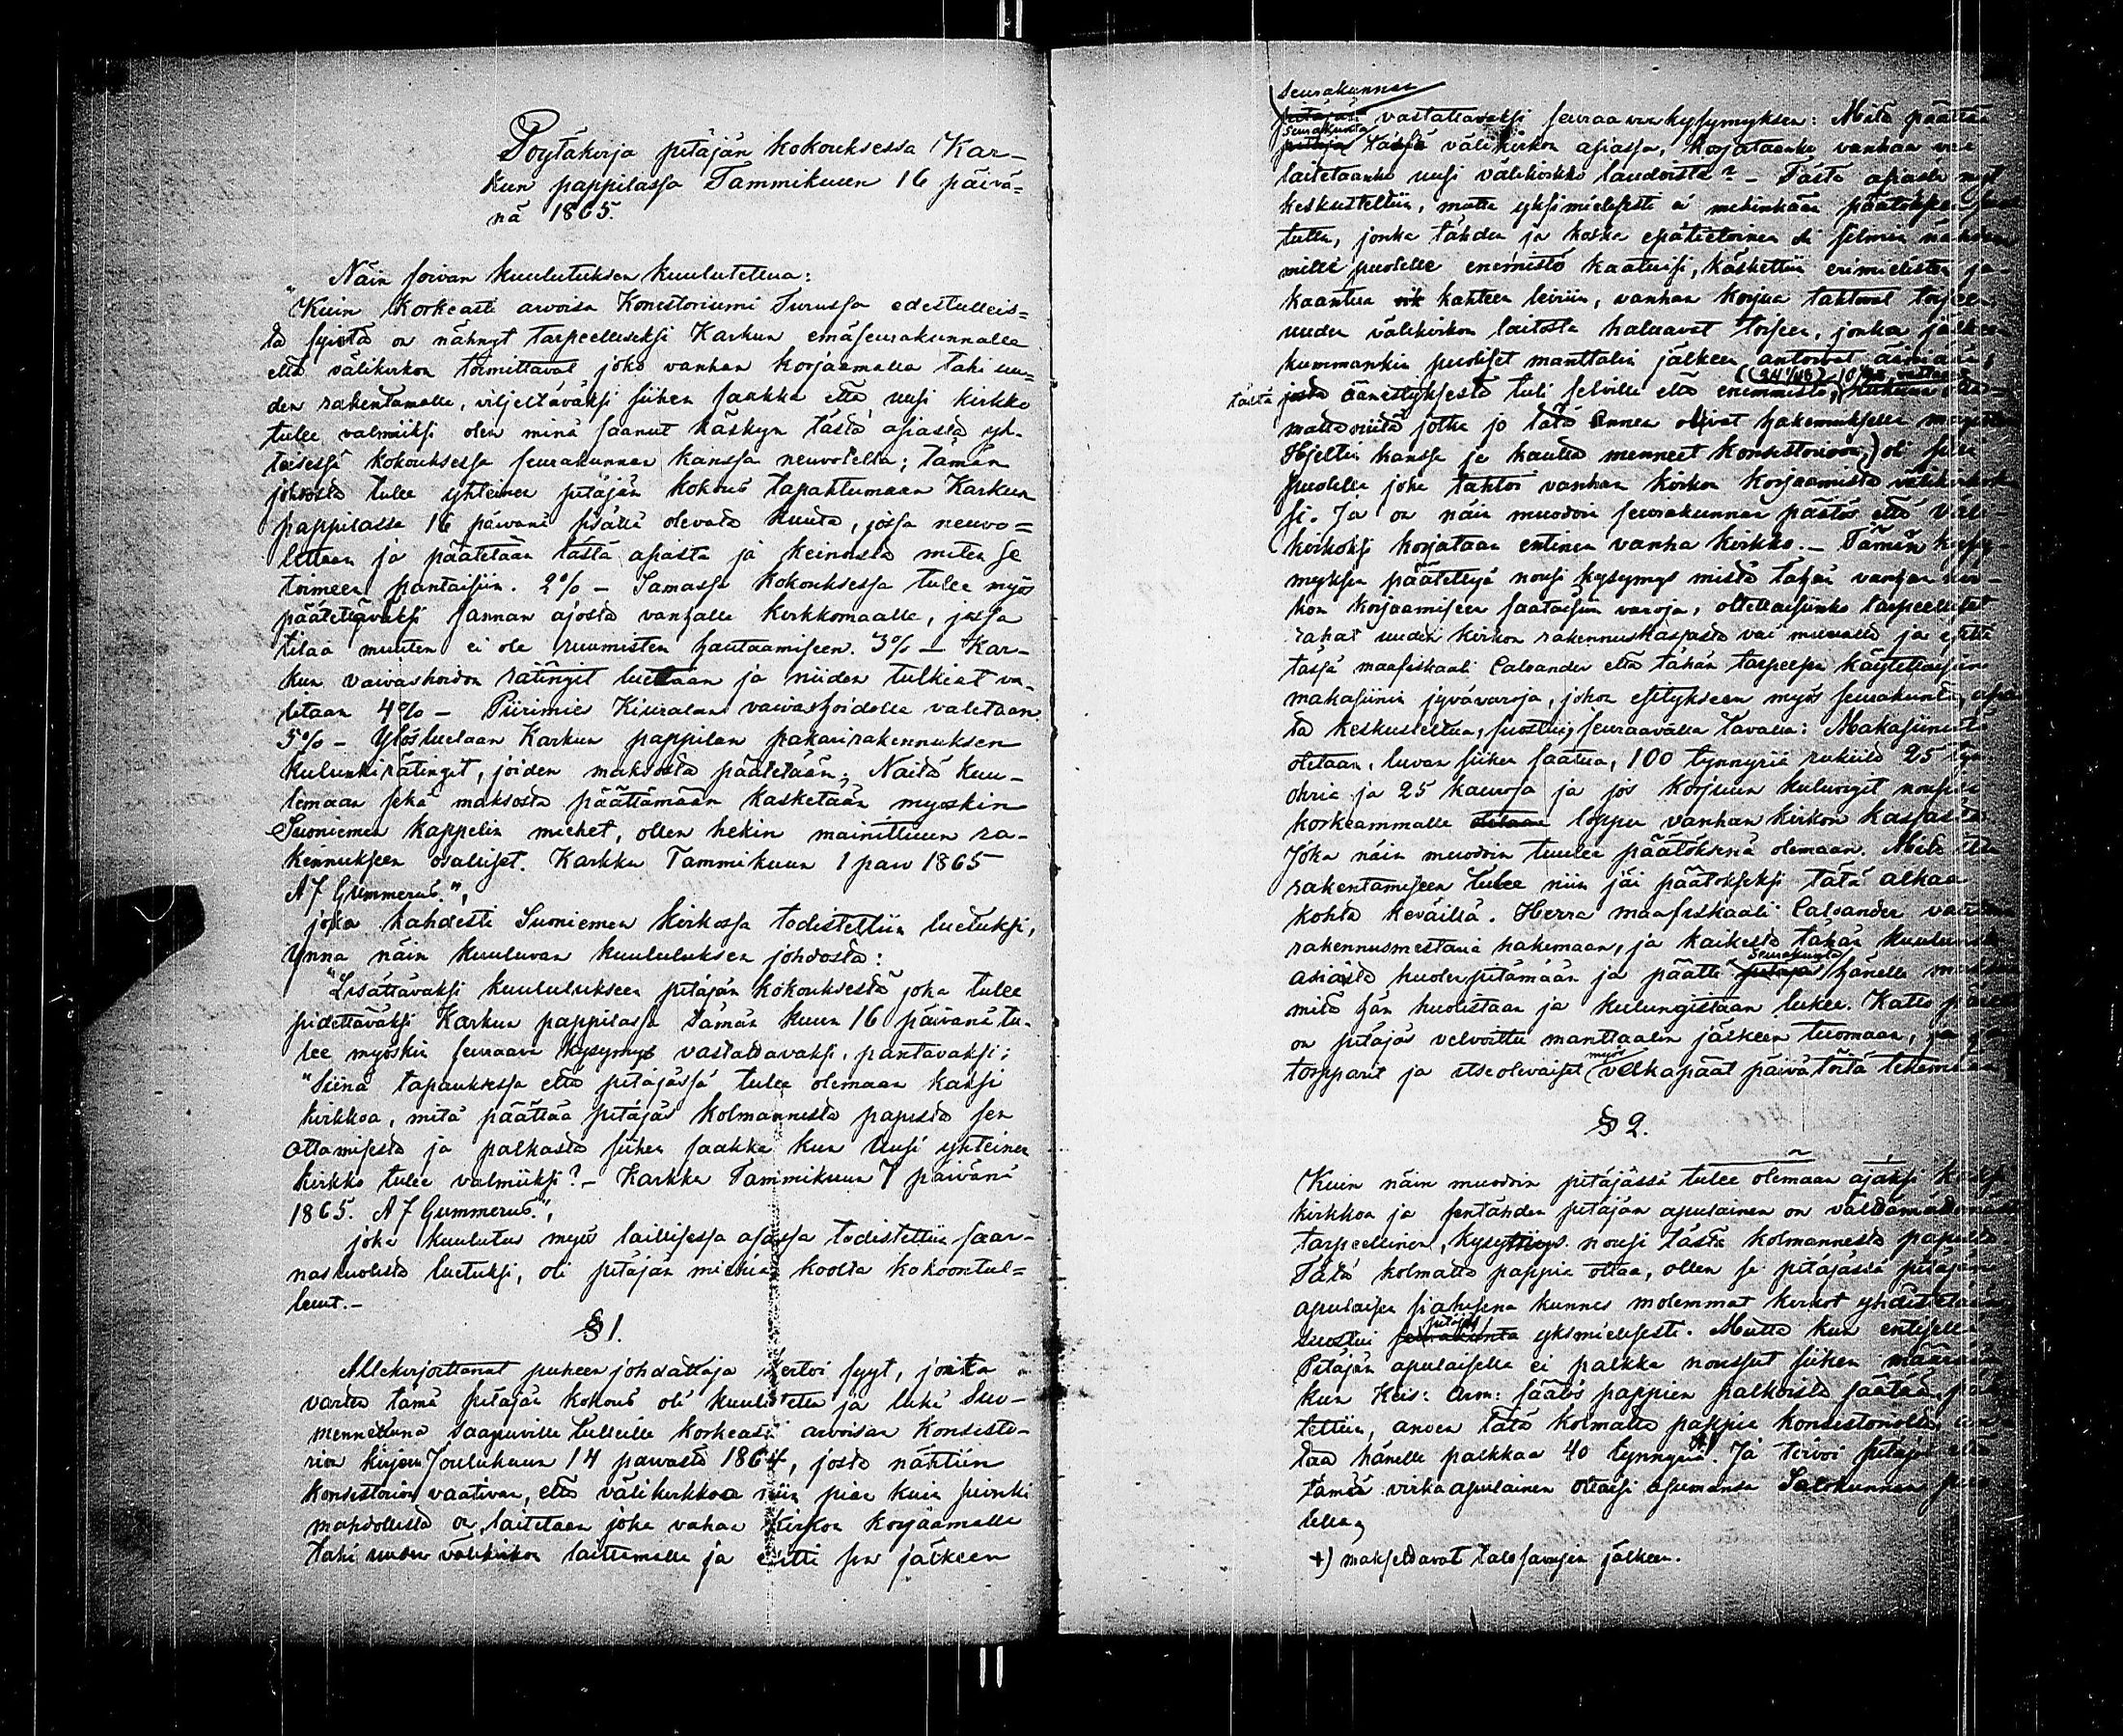 Pöytäkirja pitäjän kokouksessa Kar-
kun pappilassa Tammikuun 16 päivä=
nä 1865.
Näin soivan kuulutuksen kuulutettua:
"Kuin Korkeasti arvoisa Konsistoriumi Turussa edestulleis=
ta syistä on nähnyt tarpeelliseksi Karkun emäseurakunnalle
että välikirkon toimittavat joko vanhan korjaamalla tahi uu=
den rakentamalla, viljeltäväksi siihen saakka että uusi kirkko
tulee valmiiksi olen minä saanut käskyn tästä asiasta yh-
teisessä kokouksessa seurakunnan kanssa neuvotella; tämän
johdosta tulee yhteinen pitäjän kokous tapahtumaan Karkun
pappilassa 16 päivänä sisällä olevata kuuta, jossa neuvo=
tellaan ja päätetään tästä asiasta ja keinoista miten se
toimeen pantaisiin. 2%- Samassa kokouksessa tulee myös
päätettäväksi sannan ajosta vanhalle kirkkomaalle, jossa
tilaa muuten ei ole ruumisten hautaamiseen. 3%- Kar-
kun vaivashoidon rätingit luetaan ja niiden tutkiat va-
litaan 4%- Piirimies Kiuralan vaivashoidolle valitaan.
5%- Ylösluetaan Karkun pappilan pakarirakennuksen
kulunkirätingit, joiden maksosta päätetään; Näitä kuu-
lemaan sekä maksosta päättämään kasketään myöskin
Suoniemen kappelin miehet, ollen hekin mainittuun ra-
kennukseen osalliset. Karkku Tammikuun 1 päiv 1865
A F Gummerus.",
joka kahdesti Suoniemen kirkossa todistettiin luetuksi,
ynnä näin kuuluvan kuulutuksen johdosta:
"Lisättäväksi kuulutukseen pitäjän kokouksesta joka tulee
pidettäväksi Karkun pappilassa tämän kuun 16 päivänä tu-
lee myöskin seuraava kysymys vastattavaksi pantavaksi:
"Siinä tapauksessa että pitäjässä tulee olemaan kaksi
kirkkoa, mitä päättää pitäjäs kolmannesta papista sen
ottamisesta ja palkasta siihen saakka kun Uusi yhteinen
kirkko tulee valmiiksi?- Karkku Tammikuun 7 päivänä
1865. A F Gummerus.",
joka kuulutus myös laillisessa ajassa todistettiin saar-
nastuolista luetuksi, oli pitäjän miehiä koolta kokoontul=
leut.-
§ 1.
Allekirjoittanut puheenjohdattaja kertoi syyt, joita
varten tämä pitäjän kokous oli kuulutettu ja luki Suo-
mennettuna saapuville tulleille korkeasti arvoisan Konsisto-
rion kirjeen Joulukuun 14 päivästä 1864, josta nähtiin
konsistorion vaativan, että välikirkkoa niin pian kuin suinki
mahdollista on, laitetaan joko vahan kirkon korjaamalla
tahi uuden välikirkon laittamalla ja esitti sen jälkeen
seurakunnan
pitäjän vastattavaksi seuraavan kysymyksen: Mitä päättää
seurakunta
pitäjäs tässä välikirkon asiassa, korjataanko vanhaa vai
laitetaanko uusi välikirkko laudoista?- Tästä asiasta nyt
keskusteltiin, mutta yksimielisesti ei mihinkään päätökseen
tultu, jonka tähden ja koska epätietoinen oli silmin nähden
mille puolelle enemistö kaatuisi, käskettiin erimielisten ja-
kaantua kahteen leiriin, vanhan korjua tahtovat toiseen
uuden välikirkon laitosta haluavat toiseen, jonka jälkeen
kummankin puoliset manttalin jälkeen antoivat äänensä,
tästä josta äänestyksestä tuli selville että enemmistö,
mattomista jotka jo tätä ennen olivat hakemuksella
Hjeltin kanssa ja kautta menneet Konsistorioon,) oli sillä
puolella joka tahtoi vanhan kirkon korjaamista välikirkok-
si. Ja on näin muodoin seurakunnan päätös että väli-
kirkoksi korjataan entinen vanha kirkko.- Tämän kysy-
myksen päätettyä nousi kysymys mistä tähän vanhan kir-
kon korjaamiseen saataisiin varoja, otettaisiinko tarpeelliset
rahat uuden kirkon rakennuskassasta vai muualta ja esitti
tässä maafiskaali Calsander että tähän tarpeesen käytettaisiin
makasiinin jyvävaroja, johon esitykseen myös seurakunta,
ta keskusteltua, suostui, seuraavalla tavalla: Makasiinista
otetaan, luvan siihen saatua, 100 tynnyriä rukiita 25
ohria ja 25 kauroja ja jos korjuun kulungit nousisi
korkeammalle otetaan loppu vanhan kirkon kassasta
Joka näin muodoin tuulee päätöksenä olemaan. Mitä
rakentamiseen tulee niin jäi päätökseksi tätä alkaa
kohta keväillä. Herra maafiskaali Calsander
rakennusmestaria hakemaan, ja kaikesta tähän kuuluvista
seurakunta
asioista huolenpitämään ja päätti pitäjäs hänelle
mitä hän huolistaan ja kulungistaan lukee. Katto
on pitäjäs velvoittu manttaalin jälkeen tuomaan,
myös
torpparit ja itseolevaiset velkapäät päivätöitä tekemään
§ 2.
Kuin näin muodoin pitäjässä tulee olemaan ajaksi kaksi
kirkkoa ja sentähden pitäjän apulainen on
tarpeellinen, kysymys nousi tästä kolmannesta papista
Tätä kolmatta pappia ottaa, ollen se pitäjässä pitäjän
apulaisen siahisena kunnes molemmat kirkot yhdistetään
pitäjäs
suostui seurakunta yksmielisesti. Mutta kun entisellä
Pitäjän apulaisella ei palkka noussut siihen määrään
kun Keis: Arm: säätös pappien palkoista säätää,
tettiin, anoen tätä kolmatta pappia konsistoriolta
taa hänelle palkkaa 40 tynnyriä +). Ja toivoi pitäjäs että
tämä virkaapulainen ottaisi asumansa Salokunnan
lella,
+) maksettavat talosavujen jälkeen.